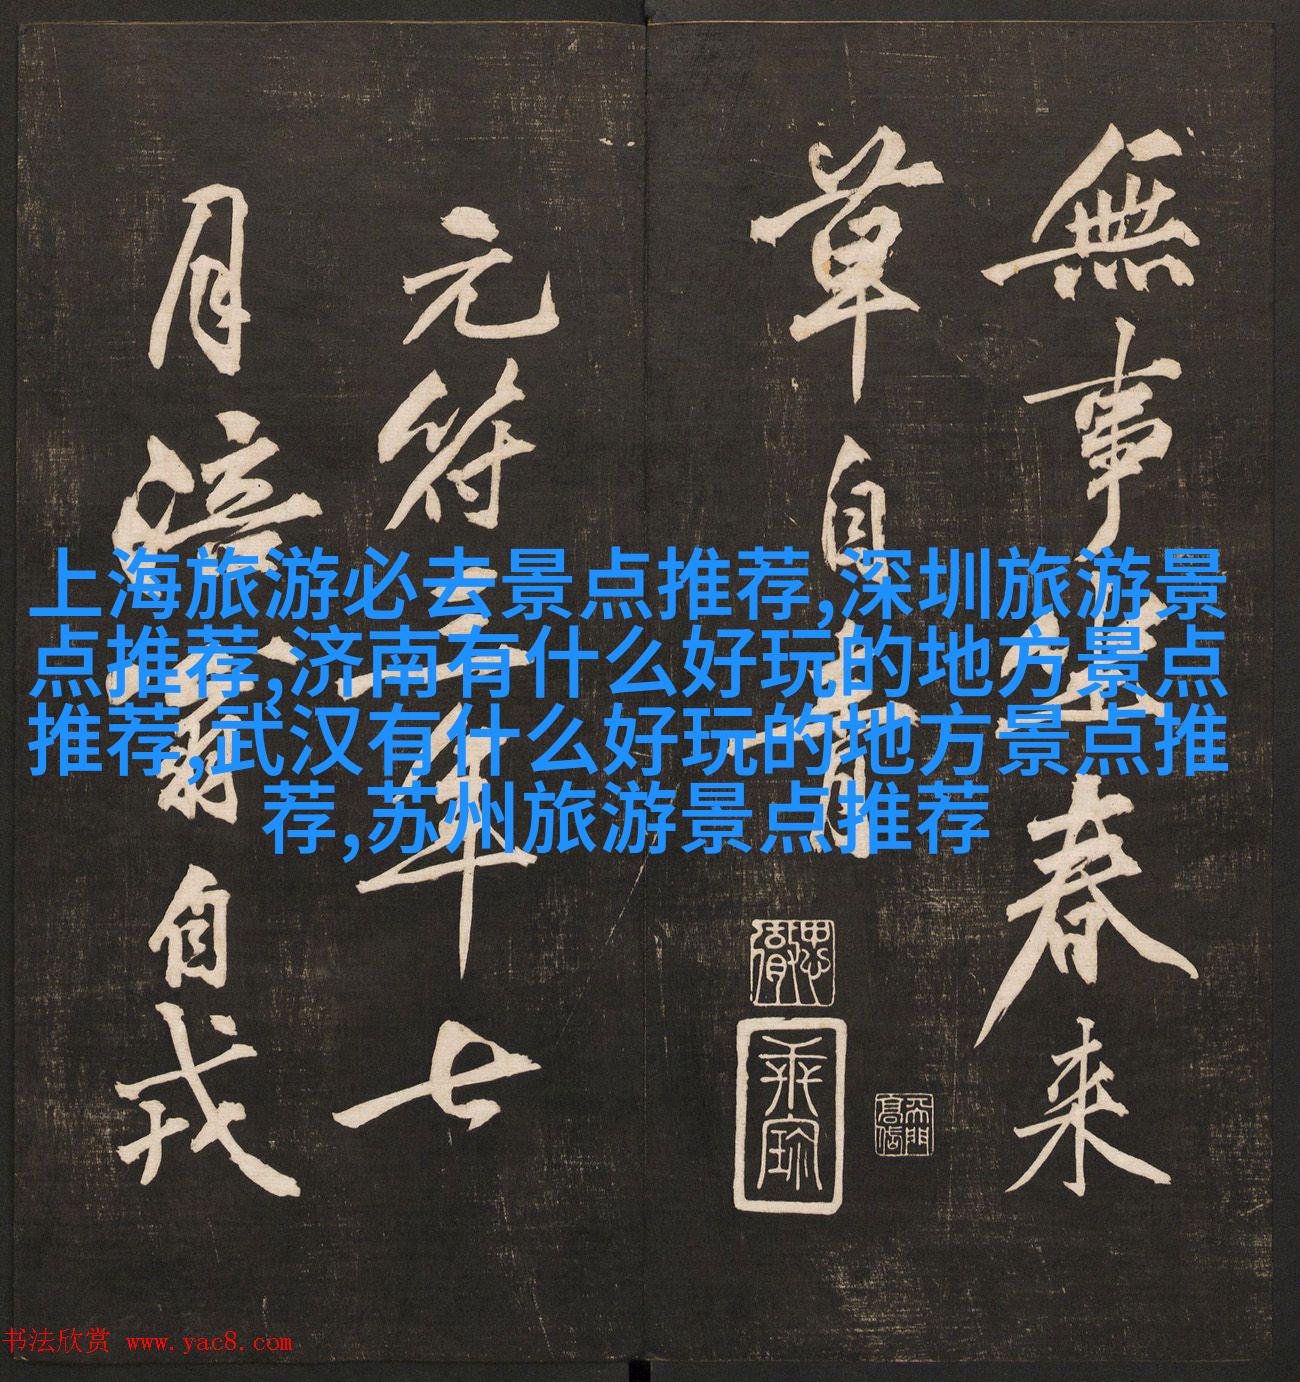 無事坐春来
草自青
元符三年七
月涪翁自戎
上海旅游必去景点推荐,深圳旅游景
点推荐,济南有什么好玩的地方景点
推荐,武汉有什么好玩的地方景点推
荐,苏州旅游景点推荐
书法欣赏 www.yac8.com